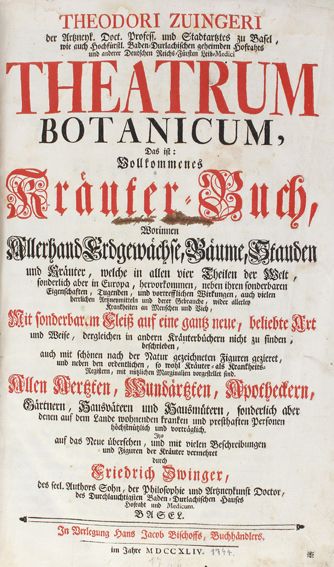 THEODORI ZUINGERI
der Artzneyk. Doct. Profess. und Stadtartztes zu Basel,
wie auch Hochfürstl. Baden-Durlachischen geheimden Hofrahts
und anderer Deutschen Reichs-Fürsten Leib-Medici
THEATRUM
BOTANICUM,
Das ist:
Vollkommenes
Kräuter-Buch,
Worinnen
Allerhand Erdgewächse, Bäume, Stauden
und Kräuter, welche in allen vier Theilen der Welt,
sonderlich aber in Europa, hervorkommen, neben ihren sonderbaren
Eigenschaften, Tugenden, und vortrefflichen Wirkungen, auch vielen
herrlichen Artzneymitteln und deren Gebrauche, wider allerley
Krankheiten an Menschen und Vieh,
Mit sonderbarem Fleiß auf eine gantz neue, beliebte Art
und Weise, dergleichen in andern Kräuterbüchern nicht zu finden,
beschrieben,
auch mit schönen nach der Natur gezeichneten Figuren gezieret,
und neben den ordentlichen, so wohl Kräuter- als Krankheits-
Registern, mit nützlichen Marginalien vorgestellet sind.
Allen Aertzten, Wundärtzten, Apotheckern,
Gärtnern, Hausvätern und Hausmütern, sonderlich aber
denen auf dem Lande wohnenden kranken und presthaften Personen
höchstnützlich und vorträglich.
Itzo
auf das Neue übersehen, und mit vielen Beschreibungen
und Figuren der Kräuter vermehret
durch
Friedrich Zwinger,
des sel. Authors Sohn, der Philosophie und Artzneykunst Doctor,
des Durchlauchtigsten Baden-Durlachischen Hauses
Hofraht und Medicum.
BASEL.
In Verlegung Hans Jacob Bischoffs, Buchhändlers.
im Jahre MDCCXLIV. 1744.